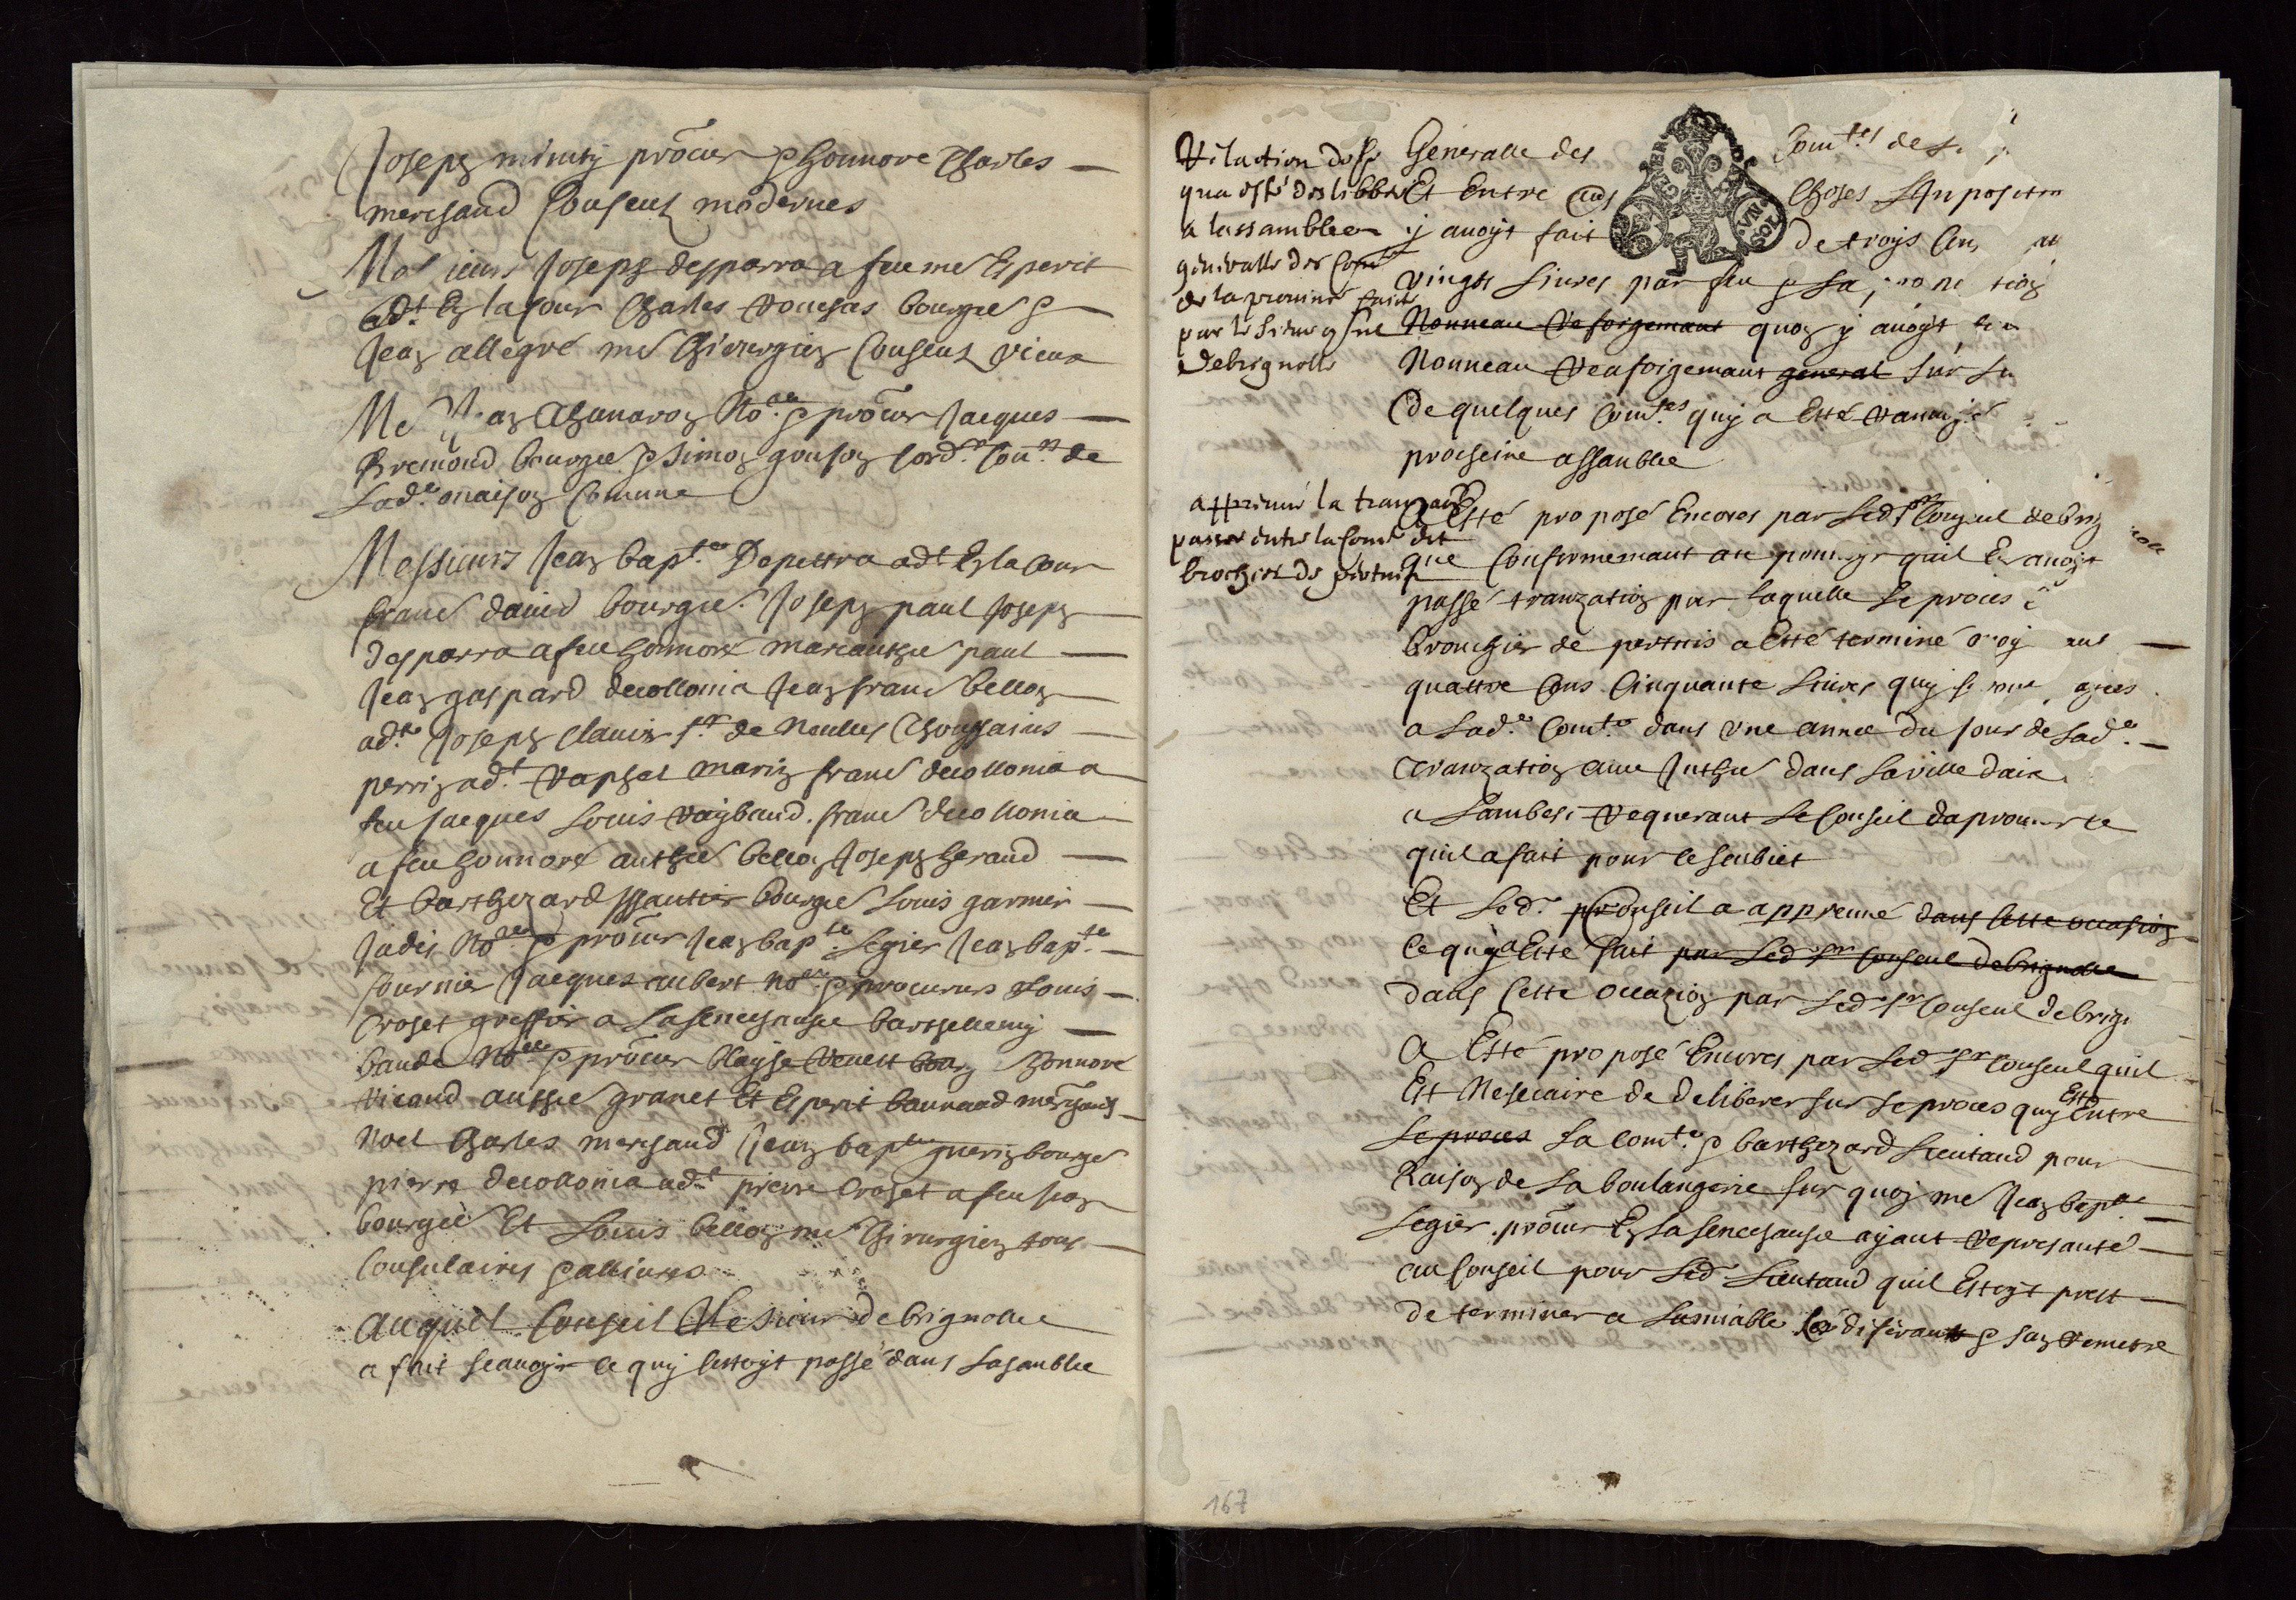 Joseph minuty procur & honnore Charles
merchand Conseuls modernes
Mes ieurs Joseph desparra a feu me Esperit
adt. En la Cour Charles bourgee &
Jean allegre me Chirurgien Conseuls vieux
Me Jean Chanaron No.re & procur Jacques
Bremond bourgee & simon gouson Cord.r Con.rs de
Lad.e maison Comune
Messieurs Jean bap.te Depettra adt En la Cour
franc david bourgee. Joseph paul Joseph
desparra a feu honnore marc anthoe paul
Jean gaspard decollonia Jean franc bellon
ad.t Joseph Clavier s.r de Neulles Thoussains
perrin ad.t Raphel marin franc decollonia a
feu Jacques Louis Raybaud. franc decollonia
a feu honnore anthoe bellon Joseph heraud
Et barthezard bourgee Louis garnier
Jadis No.re & procur Jean bap.te Legier Jean bap.te
fournier Jacques aubert no.re & procureurs Louis
Croset greffier a La senechausee barthellemy
baude No.re & procur blayse honnore
Ricaud anthoe granet Et Esperit bannaud merchands
Noel Charles merchand Jean bapte guerin bourgee
pierre decollonia ad.t pierre Croset a feu Jean
bourgee Et Louis bellon me Chirurgien tous
Consulaires & allivres
Auquel Conseil Le sieur de brignolle
a fait scavoir ce quy sestoyt passé dans Lasamblee
Relaction de se
qua esté deslibbre
a lassamblee
generalle des Com.tes
de la province faite
par le sieur Consul
de brignolle
Generalle des Com.tes de
Et Entre aus Choses Linposition
y avoyt fait de troys Cens
vingts Livres par feu &
Nonneau Reaforgemant quon y avoyt
Nonneau Reaforgemant general sur
de quelques Com.tes quy a Esté
procheine assanblee
apreuve la tranzaction
passee entre la Com.te et
brochier de pertuis
A Esté proposé Encores par Led sr Conseul de
que Conformemant au pouvoir quil En avoyt
passé tranzation par Laquelle Le proces
brouchier de pertuis a Esté terminé
quattre Cens Cinquante Livres quy
a Lad.e Com.te dans une annee du Jour de Lad.e
tranzation dans La ville daix
a Lambesc Requerant Le Conseil daprouver ce
quil a fait pour ce subiet
Et Led. Conseil a appreuvé dans cette occasion
Ce quy a Esté fait par Led sr Conseul de brignolle
dans Cette occazion par Led sr Conseul de brign
A Esté proposé Encores par Led sr Conseul quil
Est Nesecaire de deliberer sur Le proces quy Est Entre
Le proces La Com.te & barthezard Lieutaud pour
Raison de La boulangerie sur quoy me Jean bapte
Legier procur En La senechausee ayant Represanté
au Conseil pour Led Lieutaud quil Estoyt prest
de terminer a Lamiable Le diferant & sen Remetre
167